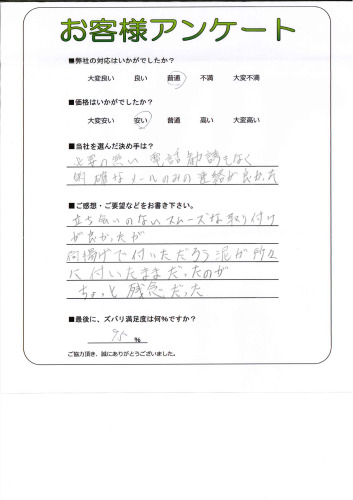 お客様アンケート
■弊社の対応はいかがでしたか？
大変良い 良い 普通 不満 大変不満
■価格はいかがでしたか？
大変安い 安い 普通 高い 大変高い
■当社を選んだ決め手は？
必要の無い 電話勧誘もなく
明確なメールのみの連絡が良かった
■ご感想・ご要望などをお書き下さい。
立ち会いのないスムーズな取り付け
が良かったが
荷揚げで付いただろう泥が所々
に付いたままだったのが
ちょっと残念だった
■最後に、ズバリ満足度は何%ですか？
95 %
ご協力頂き、誠にありがとうございました。